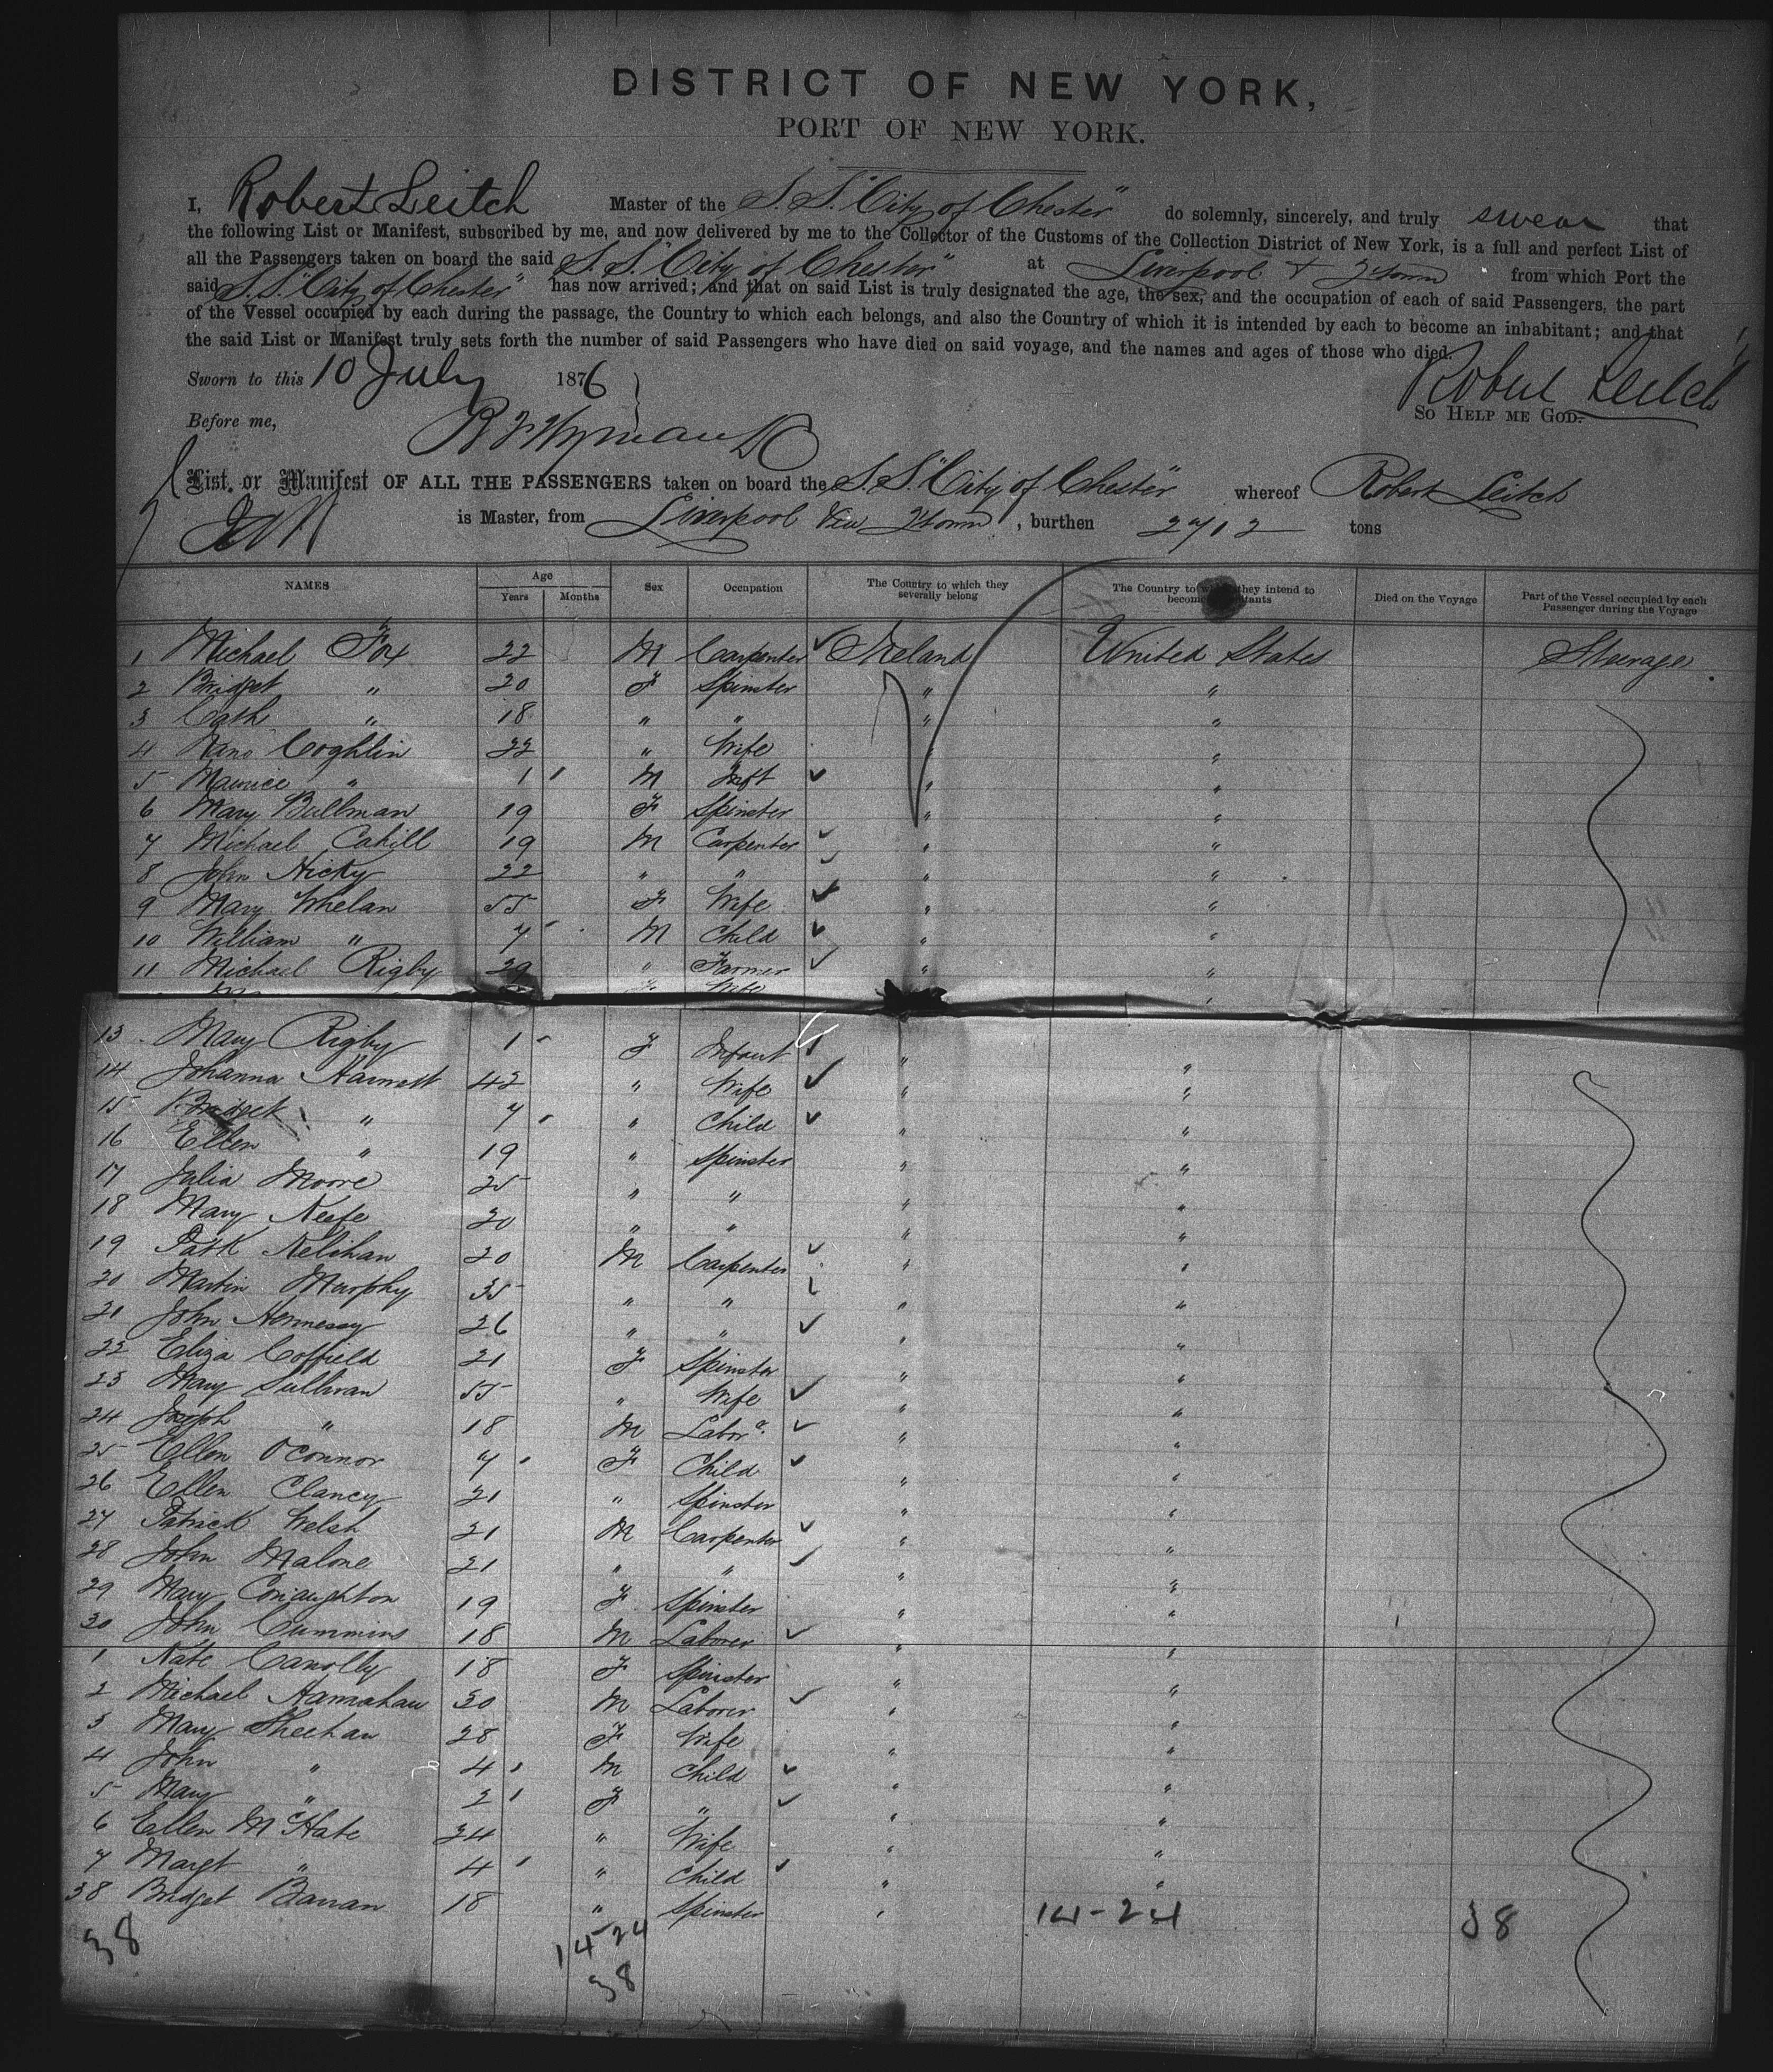 DISTRICT OF NEW YORK,
PORT OF NEW YORK.
I, Robert Leitch Master of the S.S. "City of Chester" do solemnly, sincerely, and truly swear that
the following List or Manifest, subscribed by me, and now delivered by me to the Collector of the Customs of the Collection District of New York, is a full and perfect List of
all the Passengers taken on board the said S.S. "City of Chester" at Liverpool + Qtown from which Port the
said S.S. "City of Chester" has now arrived; and that on said List is truly designated the age, the sex, and the occupation of each of said Passengers, the part
of the Vessel occupied by each during the passage, the Country to which each belongs, and also the Country of which it is intended by each to become an inhabitant; and that
the said List or Manifest truly sets forth the number of said Passengers who have died on said voyage, and the names and ages of those who died.
Sworn to this 10 July 1876 Robert Leitch
Before me, SO HELP ME GOD.
List or Manifest OF ALL THE PASSENGERS taken on board the S.S. "City of Chester" whereof Robert Leitch
is Master, from Liverpool via Qtown, burthen 2712 tons
NAMES Age Years Months Sex Occupation The Country to which they severally belong The Country to they intend to become Died on the Voyage Part of the Vessel occupied by each Passenger during the Voyage
1 Michael Fox 22 M Carpenter Ireland United States Steerage
2 Bridget " 20 F Spinster " "
3 Cath " 18 " " " "
4 Nano Coghlin 22 " Wife " "
5 Maurice " 1 M Inft " "
6 Mary Bullman 19 F Spinster " "
7 Michael Cahill 19 M Carpenter " "
8 John Hicky 22 " " " "
9 Mary Whelan 55 F Wife " "
10 William " 7 M Child " "
11 Michael Rigby 29 " Farmer " "
F Wife "
13 Mary Rigby 1 F Infant " "
14 Johanna Harnett 42 " Wife " "
15 Bridget " 7 " Child " "
16 Ellen " 19 " Spinster " "
17 Julia Moore 25 " " " "
18 Mary Keefe 20 " " " "
19 Patk Kelihan 20 M Carpenter " "
20 Martin Murphy 35 " " " "
21 John Hennessy 26 " " " "
22 Eliza Coffield 21 F Spinster " "
23 Mary Sullivan 55 " Wife " "
24 Joseph " 18 M Labor " "
25 Ellen O'Connor 7 F Child " "
26 Ellen Clancy 21 " Spinster " "
27 Patrick Welsh 21 M Carpenter " "
28 John Malone 21 " " " "
29 Mary Conaughton 19 F Spinster " "
30 John Cummins 18 M Laborer " "
1 Kate Canolly 18 F Spinster " "
2 Michael 30 M Laborer " "
3 Mary Sheehan 28 F Wife " "
4 John " 4 M Child " "
5 Mary " 2 F " " "
6 Ellen McHale 24 " Wife " "
7 Margt " 4 " Child " "
38 Bridget 18 " Spinster " 14-24 38
38 14-24
38